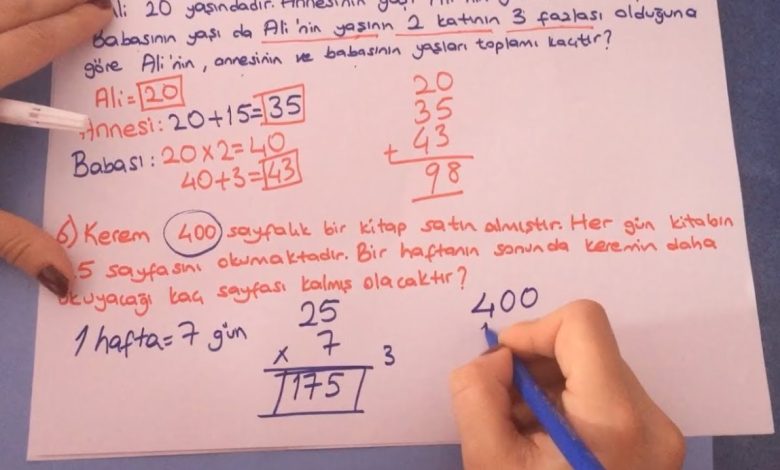 Ali 20 yaşındadır. Annesinin yaşı Ali'nin
Babasının yaşı da Ali'nin yaşının 2 katının 3 fazlası olduğuna
göre Ali'nin, annesinin ve babasının yaşları toplamı kaçtır?
Ali = 20
Annesi: 20+15=35
Babası: 20x2=40
40+3=43
20
35
43
+
98
6) Kerem 400 sayfalık bir kitap satın almıştır. Her gün kitabın
5 sayfasını okumaktadır. Bir haftanın sonunda keremin daha
okuyacağı kaç sayfası kalmış olacaktır?
1 hafta = 7 gün
25
x 7
3
175
400
1